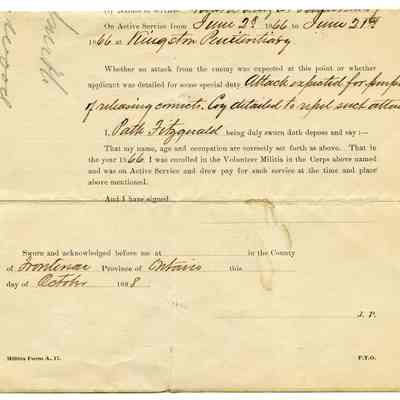 On Active Service from June 2d 1866 to June 21st
1866 at Kingston Penitentiary
Whether no attack from the enemy was expected at this point or whether
applicant was detailed for some special duty Attack expected for purp
of releasing convicts. Coy detailed to repel such attem
I, Patk Fitzgerald being duly sworn doth depose and say :—
That my name, age and occupation are correctly set forth as above. That in
the year 1866. I was enrolled in the Volunteer Militia in the Corps above named
and was on Active Service and drew pay for such service at the time and place
above mentioned.
And I have signed
Sworn and acknowledged before me at in the County
of Frontenac Province of Ontario this
day of October 1898
J. P.
Militia Form A. 17.
P.T.O.